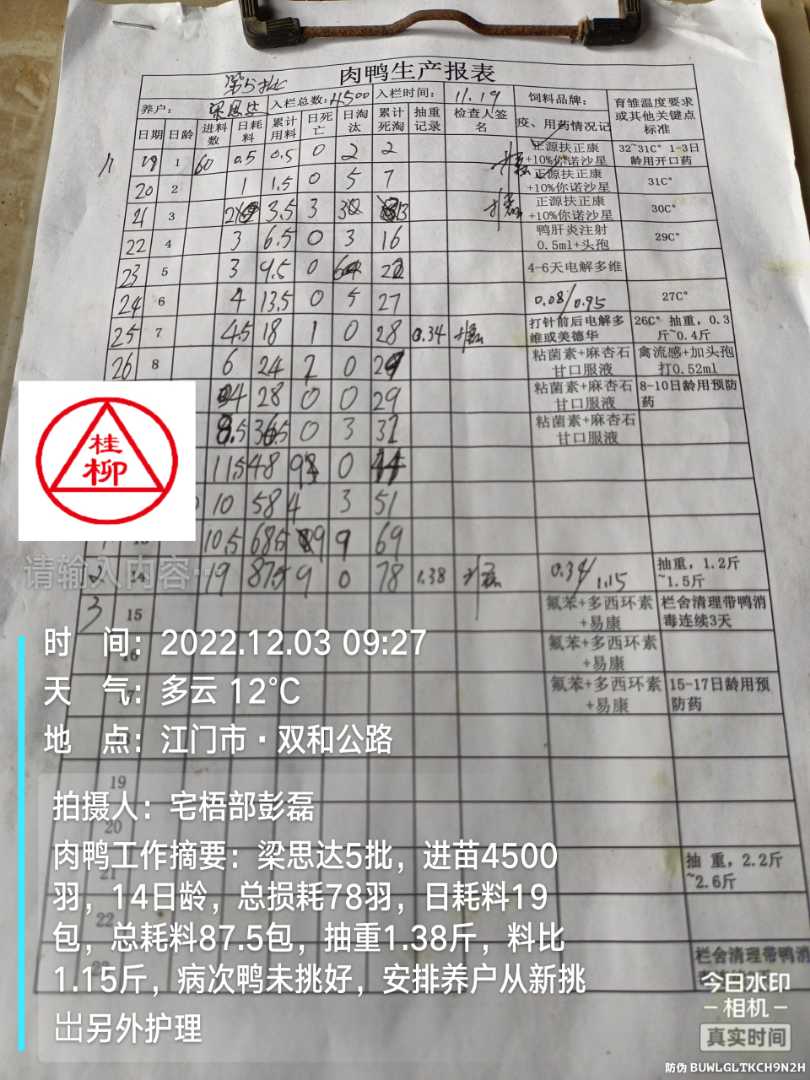 肉鸭生产报表
第5批
养户: 梁思达 入栏总数: 4500 入栏时间: 11.19 饲料品牌: 育雏温度要求或其他关键点标准
日期 日龄 进料数 日耗料 累计用料 日死亡 日淘汰 累计死淘 抽重记录 检查人签名 疫、用药情况记
11/19 1 60 0.5 0.5 0 2 2 正源扶正康+10%你诺沙星 32~31C° 1-3日龄用开口药
20 2 1 1.5 0 5 7 正源扶正康+10%你诺沙星 31C°
21 3 2 3.5 3 3 13 正源扶正康+10%你诺沙星 30C°
22 4 3 6.5 0 3 16 鸭肝炎注射0.5ml+头孢 29C°
23 5 3 9.5 0 6 22 4-6天电解多维
24 6 4 13.5 0 5 27 0.08/0.95 27C°
25 7 4.5 18 1 0 28 0.34 打针前后电解多维或美德华 26C° 抽重,0.3斤~0.4斤
26 8 6 24 2 0 29 粘菌素+麻杏石甘口服液 禽流感+加头孢打0.52ml
4 28 0 0 29 粘菌素+麻杏石甘口服液 8-10日龄用预防药
8.5 36.5 0 3 32 粘菌素+麻杏石甘口服液
11.5 48 0 44
10 58 4 3 51
10.5 68.5 9 9 69
2 14 19 87.5 9 0 78 1.38 0.34/1.15 抽重,1.2斤~1.5斤
3 15 氟苯+多西环素+易康 栏舍清理带鸭消毒连续3天
16 氟苯+多西环素+易康
17 氟苯+多西环素+易康 15-17日龄用预防药
18
19
20
21 抽 重,2.2斤~2.6斤
22
23 栏舍清理带鸭消
桂
柳
请输入内容…
时 间: 2022.12.03 09:27
天 气: 多云 12°C
地 点: 江门市·双和公路
拍摄人: 宅梧部彭磊
肉鸭工作摘要: 梁思达5批, 进苗4500
羽, 14日龄, 总损耗78羽, 日耗料19
包, 总耗料87.5包, 抽重1.38斤, 料比
1.15斤, 病次鸭未挑好, 安排养户从新挑
出另外护理
今日水印
-相机-
真实时间
防伪 BUWLGLTKCH9N2H